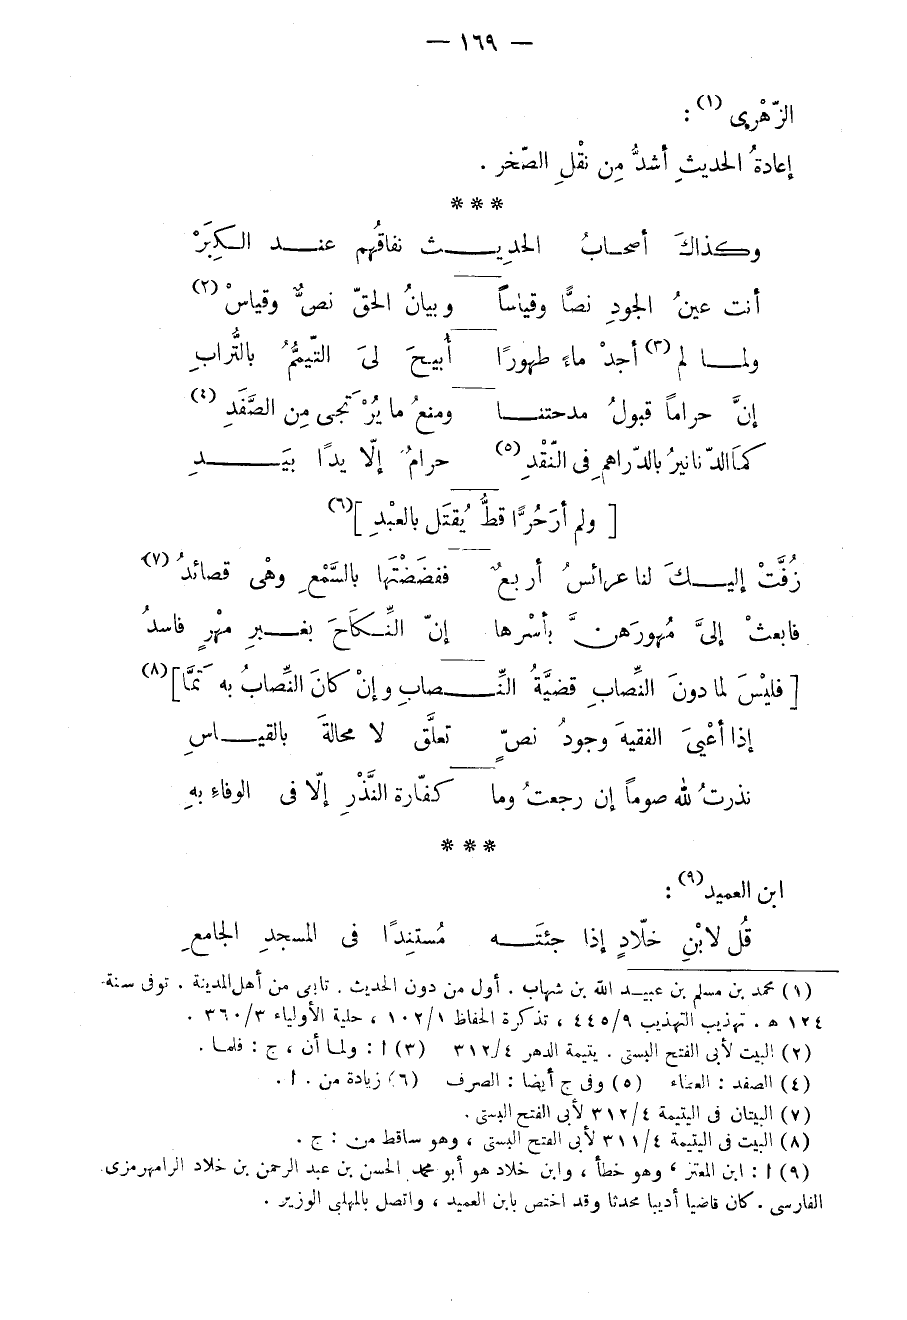 — ١٦٩ —
الزّهْرى (١) :
إعادةُ الحديثِ أشدُّ مِن نقْلِ الصّخر .
***
وكذاكَ أصحابُ الحديث نفاقُهم عند الكِبَرْ
أنت عينُ الجودِ نصًّا وقياساً وبيانُ الحقّ نصٌّ وقياسْ (٢)
ولما لم (٣) أجدْ ماءً طهورًا أُبيحَ لىَ التّيممُّ بالتُّرابِ
إنَّ حراماً قبولُ مدحتنا ومنعُ ما يُرْتجى مِن الصَّفَدِ (٤)
كمَا الدّنانيرُ بالدّراهمِ فى النّقْدِ (٥) حرامٌ إلّا يدًا بيَدِ
[ ولم أرَ حُرًّا قطُّ يُقتَل بالعبْدِ ] (٦)
زُفَّتْ إليكَ لنا عرائسُ أربعٌ ففضَضْتَها بالسَّمْعِ وهْى قصائدُ (٧)
فابعثْ إلىَّ مُهورَهنَّ بأسْرها إنّ النِّكاحَ بغيرِ مهْرٍ فاسدُ
[ فليْسَ لما دونَ النِّصابِ قضيَّةُ النِّصابِ وإنْ كانَ النِّصابُ به تَمَّا ] (٨)
إذا أعْيىَ الفقيهَ وجودُ نصٍّ تعلَّق لا محالةَ بالقياسِ
نذرتُ لله صوماً إن رجعتُ وما كفّارة النَّذْرِ إلّا فى الوفاءِ بهِ
***
ابن العميد (٩) :
قُل لابْنِ خلّادٍ إذا جئتَه مُستندًا فى المسجدِ الجامعِ
(١) محمد بن مسلم بن عبيد الله بن شهاب . أول من دون الحديث . تابى من أهل المدينة . توفى سنة
١٢٤ هـ . تهذيب التهذيب ٤٤٥/٩ ، تذكرة الحفاظ ١٠٢/١ ، حلية الأولياء ٣٦٠/٣ .
(٢) البيت لأبى الفتح البستى . يتيمة الدهر ٣١٢/٤ (٣) ا : ولما أن ، ج : فلما .
(٤) الصفد : العطاء (٥) وفى ج أيضا : الصرف (٦) زيادة من . ا .
(٧) البيتان فى اليتيمة ٣١٢/٤ لأبى الفتح البستى .
(٨) البيت فى اليتيمة ٣١١/٤ لأبى الفتح البستى ، وهو ساقط من : ج .
(٩) ا : ابن المعتز ، وهو خطأ ، وابن خلاد هو أبو محمد الحسن بن عبد الرحمن بن خلاد الرامهرمزى
الفارسى . كان قاضيا أديبا محدثا وقد اختص بابن العميد ، واتصل بالمهلبى الوزير .